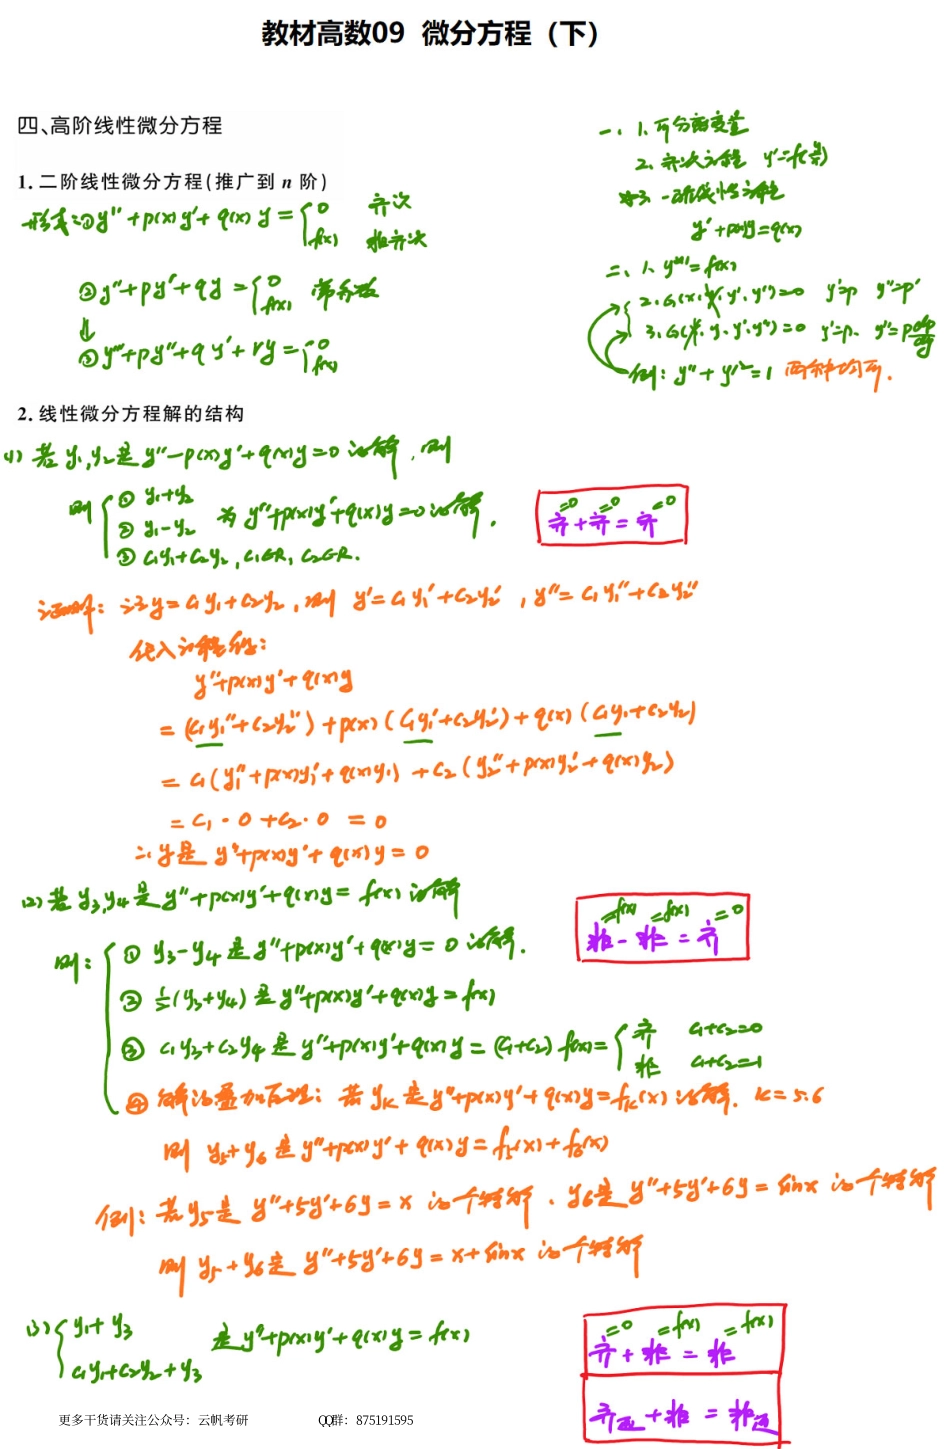 教材高数09 微分方程（下）
四、高阶线性微分方程
一、1.可分离变量
2.齐次方程 y'=f(y/x)
1. 二阶线性微分方程(推广到 n 阶)
☆3.一阶线性方程
y'+p(x)y=q(x)
形式:①y''+p(x)y'+q(x)y={0 齐次
f(x) 非齐次
二、1. y⁽ⁿ⁾=f(x)
②y''+py'+qy={0 常系数
f(x)
2.G(x,y,y',y'')=0 y'=p y''=p'
3.G(x,y,y',y'')=0 y'=p, y''=p dp/dy
⇓
③y'''+py''+qy'+ry={0
f(x)
例:y''+y'²=1 两种均可.
2. 线性微分方程解的结构
(1)若y₁,y₂是y''-p(x)y'+q(x)y=0的解,则
则{①y₁+y₂
②y₁-y₂ 为y''+p(x)y'+q(x)y=0的解.
③c₁y₁+c₂y₂,c₁∈R,c₂∈R.
=0 =0 =0
齐+齐=齐
证明:设y=c₁y₁+c₂y₂,则 y'=c₁y₁'+c₂y₂',y''=c₁y₁''+c₂y₂''
代入方程得:
y''+p(x)y'+q(x)y
=(c₁y₁''+c₂y₂'')+p(x)(c₁y₁'+c₂y₂')+q(x)(c₁y₁+c₂y₂)
=c₁(y₁''+p(x)y₁'+q(x)y₁)+c₂(y₂''+p(x)y₂'+q(x)y₂)
=c₁·0+c₂·0=0
∴y是y''+p(x)y'+q(x)y=0
(2)若y₃,y₄是y''+p(x)y'+q(x)y=f(x)的解
=f(x) =f(x) =0
非-非=齐
则:{①y₃-y₄是y''+p(x)y'+q(x)y=0的解.
②½(y₃+y₄)是y''+p(x)y'+q(x)y=f(x)
③c₁y₃+c₂y₄是y''+p(x)y'+q(x)y=(c₁+c₂)f(x)={齐 c₁+c₂=0
非 c₁+c₂=1
④解的叠加原理:若yₖ是y''+p(x)y'+q(x)y=fₖ(x)的解.k=5.6
则y₅+y₆是y''+p(x)y'+q(x)y=f₅(x)+f₆(x)
例:若y₅是y''+5y'+6y=x的个特解.y₆是y''+5y'+6y=sinx的个特解
则y₅+y₆是y''+5y'+6y=x+sinx的个特解
(3){y₁+y₃
c₁y₁+c₂y₂+y₃ 是y''+p(x)y'+q(x)y=f(x)
=0 =f(x) =f(x)
齐+非=非
齐通+非=非通
更多干货请关注公众号：云帆考研 QQ群：875191595